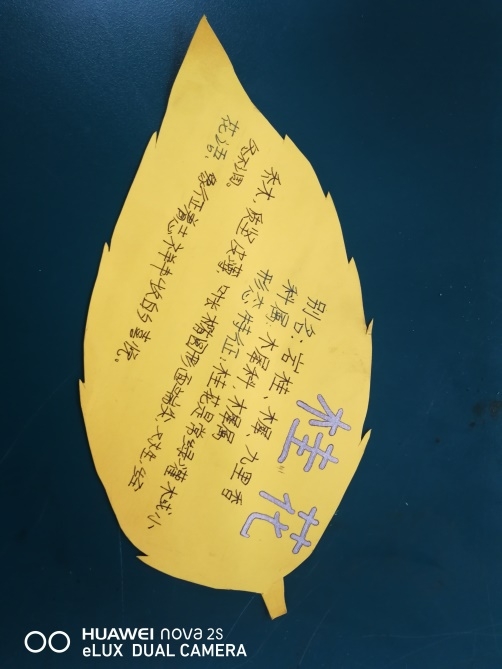 桂花
别名:岩桂、木犀、九里香
科属:木犀科、木犀属
形态特征:桂花是常绿灌木或小
乔木,质坚皮薄,叶长椭圆形面端尖,对生,经
冬不凋。
花语:象征
HUAWEI nova 2S
eLUX DUAL CAMERA